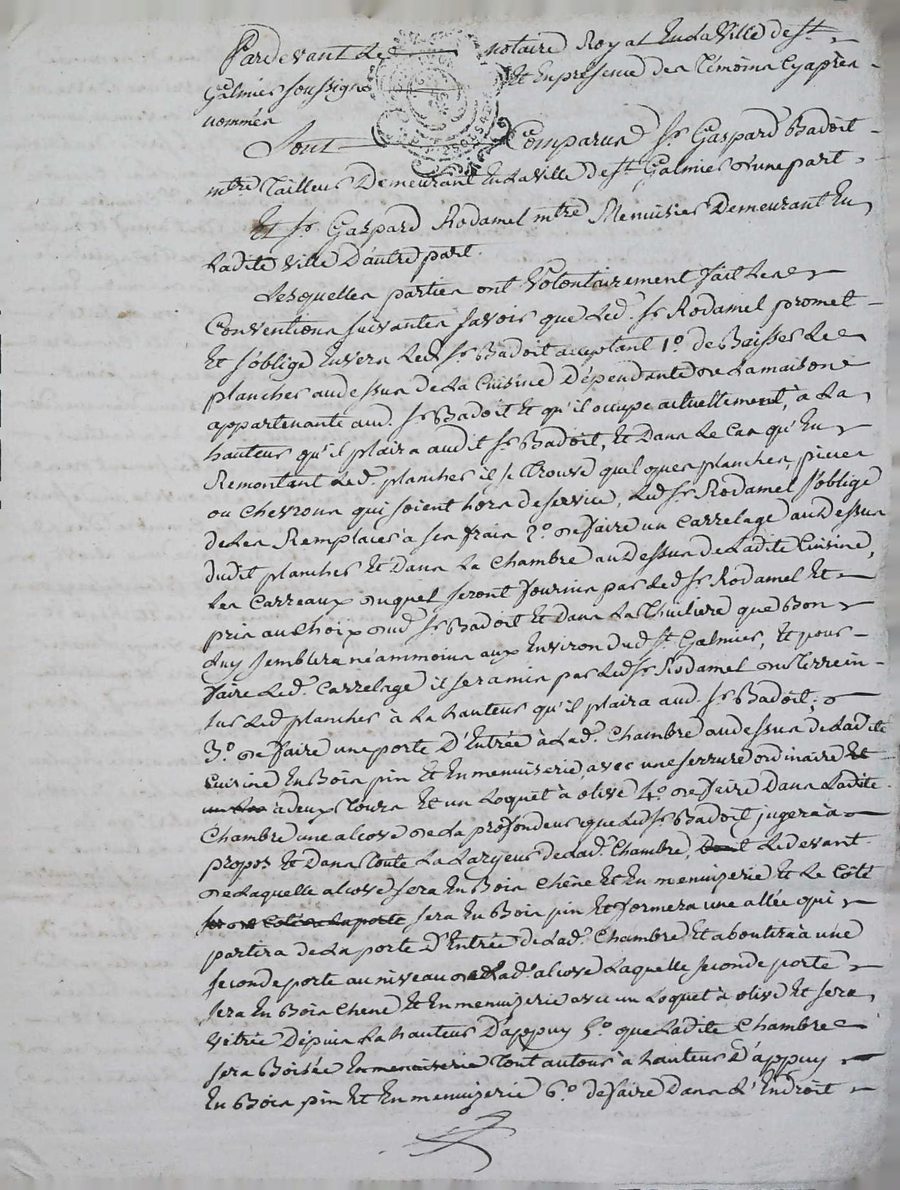 Pardevant Le notaire Royal En La Ville de St
Galmier soussigné Et En présence des Témoins Cy après
nommés
Sont Comparus Sr. Gaspard Badoit
mtre Tailleur Demeurant En La Ville de St. Galmier d'une part
Et Sr. Gaspard Rodamel mtre Menuisier Demeurant En
Ladite Ville D'autre part.
Lesquelles parties ont Volontairement fait Les
Conventions suivantes savoir que Led. Sr Rodamel promet
Et s'oblige Envers Led. Sr Badoit acceptant 1o. de Baisser Le
plancher audessus de La Cuisine Dépendante de La maison
appartenante aud. Sr Badoit Et qu'il occupe actuellement, à La
hauteur qu'il plaira audit Sr. Badoit, Et Dans Le Cas qu'En
Remontant Led. plancher il se Trouve quelques planches, pieces
ou Chevrons qui soient hors de service, Led. Sr Rodamel s'oblige
de Les Remplacer à ses frais 2o. de faire un Carrelage au Dessus
dudit plancher Et Dans La Chambre au Dessus de Ladite Cuisine,
Les Carreaux duquel seront fournis par Led. Sr. Rodamel Et
pris au Choix dud. Sr Badoit Et Dans La Thuiliere que Bon
Luy semblera néammoins aux Environ dud. St. Galmier, Et pour
faire Led. Carrelage il sera mis par Led. Sr Rodamel du Terrein
sur Led. plancher à La hauteur qu'il plaira aud. Sr. Badoit;
3o. de faire une porte D'Entrée à Lad. Chambre audessus de Ladite
Cuisine En Bois pin Et En menuiserie, avec une serrure ordinaire Et
à deux Tours Et un Loquet à olive 4o. de faire Dans Ladite
Chambre une alcove de La profondeur que Led. Sr. Badoit jugera à
propos Et Dans Toute La Largeur de Lad. Chambre, Le devant
de Laquelle alcove sera En Bois Chêne Et En menuiserie Et Le Côté
sera En Bois pin Et formera une allée qui
partira de La porte D'Entrée de Lad. Chambre Et aboutira à une
seconde porte au niveau de Lad. alcove Laquelle seconde porte
sera En Bois Chene Et En menuiserie avec un Loquet à olive Et sera
Vitrée Dépuis La hauteur D'appuy 5o. que Ladite Chambre
sera Boisée En menuiserie Tout autour à hauteur D'appuy
En Bois pin Et En menuiserie 6o. de faire Dans L'Endroit